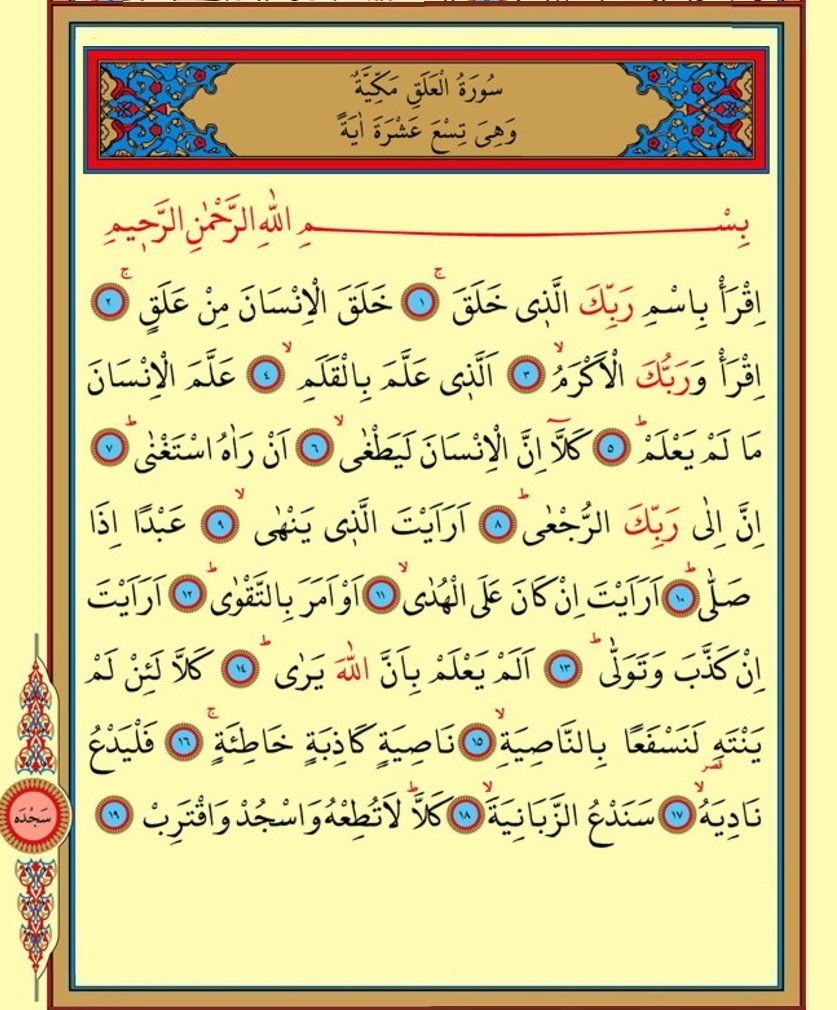 سُورَةُ الْعَلَقِ مَكِّيَّةٌ
وَهِىَ تِسْعَ عَشْرَةَ اٰيَةً
بِسْمِ اللّٰهِ الرَّحْمٰنِ الرَّح۪يمِ
اِقْرَأْ بِاسْمِ رَبِّكَ الَّذ۪ى خَلَقَۚ ﴿١﴾ خَلَقَ الْاِنْسَانَ مِنْ عَلَقٍۚ ﴿٢﴾
اِقْرَأْ وَرَبُّكَ الْاَكْرَمُۙ ﴿٣﴾ اَلَّذ۪ى عَلَّمَ بِالْقَلَمِۙ ﴿٤﴾ عَلَّمَ الْاِنْسَانَ
مَا لَمْ يَعْلَمْۜ ﴿٥﴾ كَلَّٓا اِنَّ الْاِنْسَانَ لَيَطْغٰىۙ ﴿٦﴾ اَنْ رَاٰهُ اسْتَغْنٰىۜ ﴿٧﴾
اِنَّ اِلٰى رَبِّكَ الرُّجْعٰىۜ ﴿٨﴾ اَرَاَيْتَ الَّذ۪ى يَنْهٰىۙ ﴿٩﴾ عَبْدًا اِذَا
صَلّٰىۜ ﴿١٠﴾ اَرَاَيْتَ اِنْ كَانَ عَلَى الْهُدٰىۙ ﴿١١﴾ اَوْ اَمَرَ بِالتَّقْوٰىۜ ﴿١٢﴾ اَرَاَيْتَ
اِنْ كَذَّبَ وَتَوَلّٰىۜ ﴿١٣﴾ اَلَمْ يَعْلَمْ بِاَنَّ اللّٰهَ يَرٰىۜ ﴿١٤﴾ كَلَّا لَئِنْ لَمْ
يَنْتَهِ لَنَسْفَعًا بِالنَّاصِيَةِۙ ﴿١٥﴾ نَاصِيَةٍ كَاذِبَةٍ خَاطِئَةٍۚ ﴿١٦﴾ فَلْيَدْعُ
قصر
نَادِيَهُۙ ﴿١٧﴾ سَنَدْعُ الزَّبَانِيَةَۙ ﴿١٨﴾ كَلَّاۜ لَا تُطِعْهُ وَاسْجُدْ وَاقْتَرِبْ ﴿١٩﴾
سَجْدَه